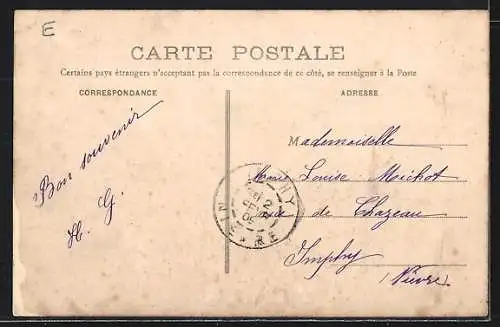 E
CARTE POSTALE
Certains pays étrangers n'acceptant pas la correspondance de ce côté, se renseigner à la Poste
CORRESPONDANCE
ADRESSE
Bon souvenir
H. G.
Mademoiselle
Marie Louise Moichot
de Chazeau
Imphy
(Nièvre)